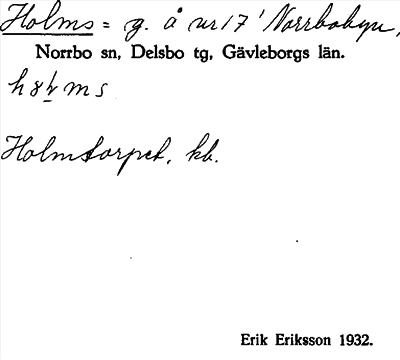 Holms = g. å nr 17 i Norrbobyn,
Norrbo sn, Delsbo tg, Gävleborgs län.
Holmtorpet, kb.
Erik Eriksson 1932.